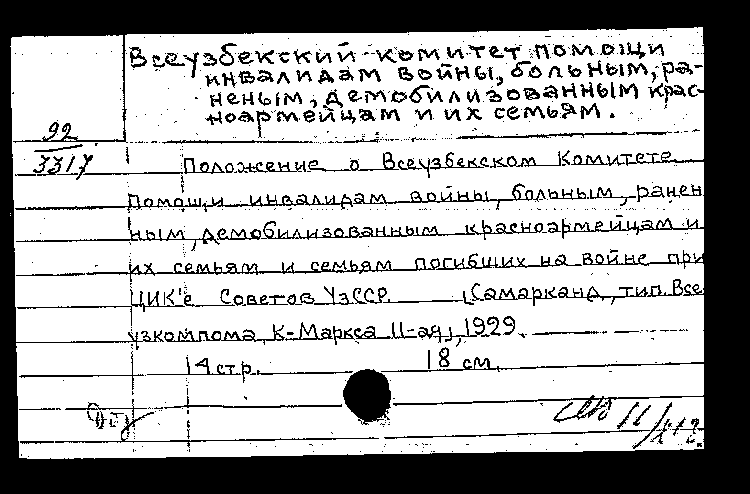 Всеузбекский комитет помощи
инвалидам войны, больным, ра-
неным, демобилизованным крас-
ноармейцам и их семьям.
92
3317
Положение о Всеузбекском Комитете
помощи инвалидам войны, больным, ранен
ным, демобилизованным красноармейцам и
их семьям и семьям погибших на войне при
ЦИК'е Советов УзССР. [Самарканд, тип. Все
узкомпома, К-Маркса 11-ая], 1929.
14 стр. 18 см.